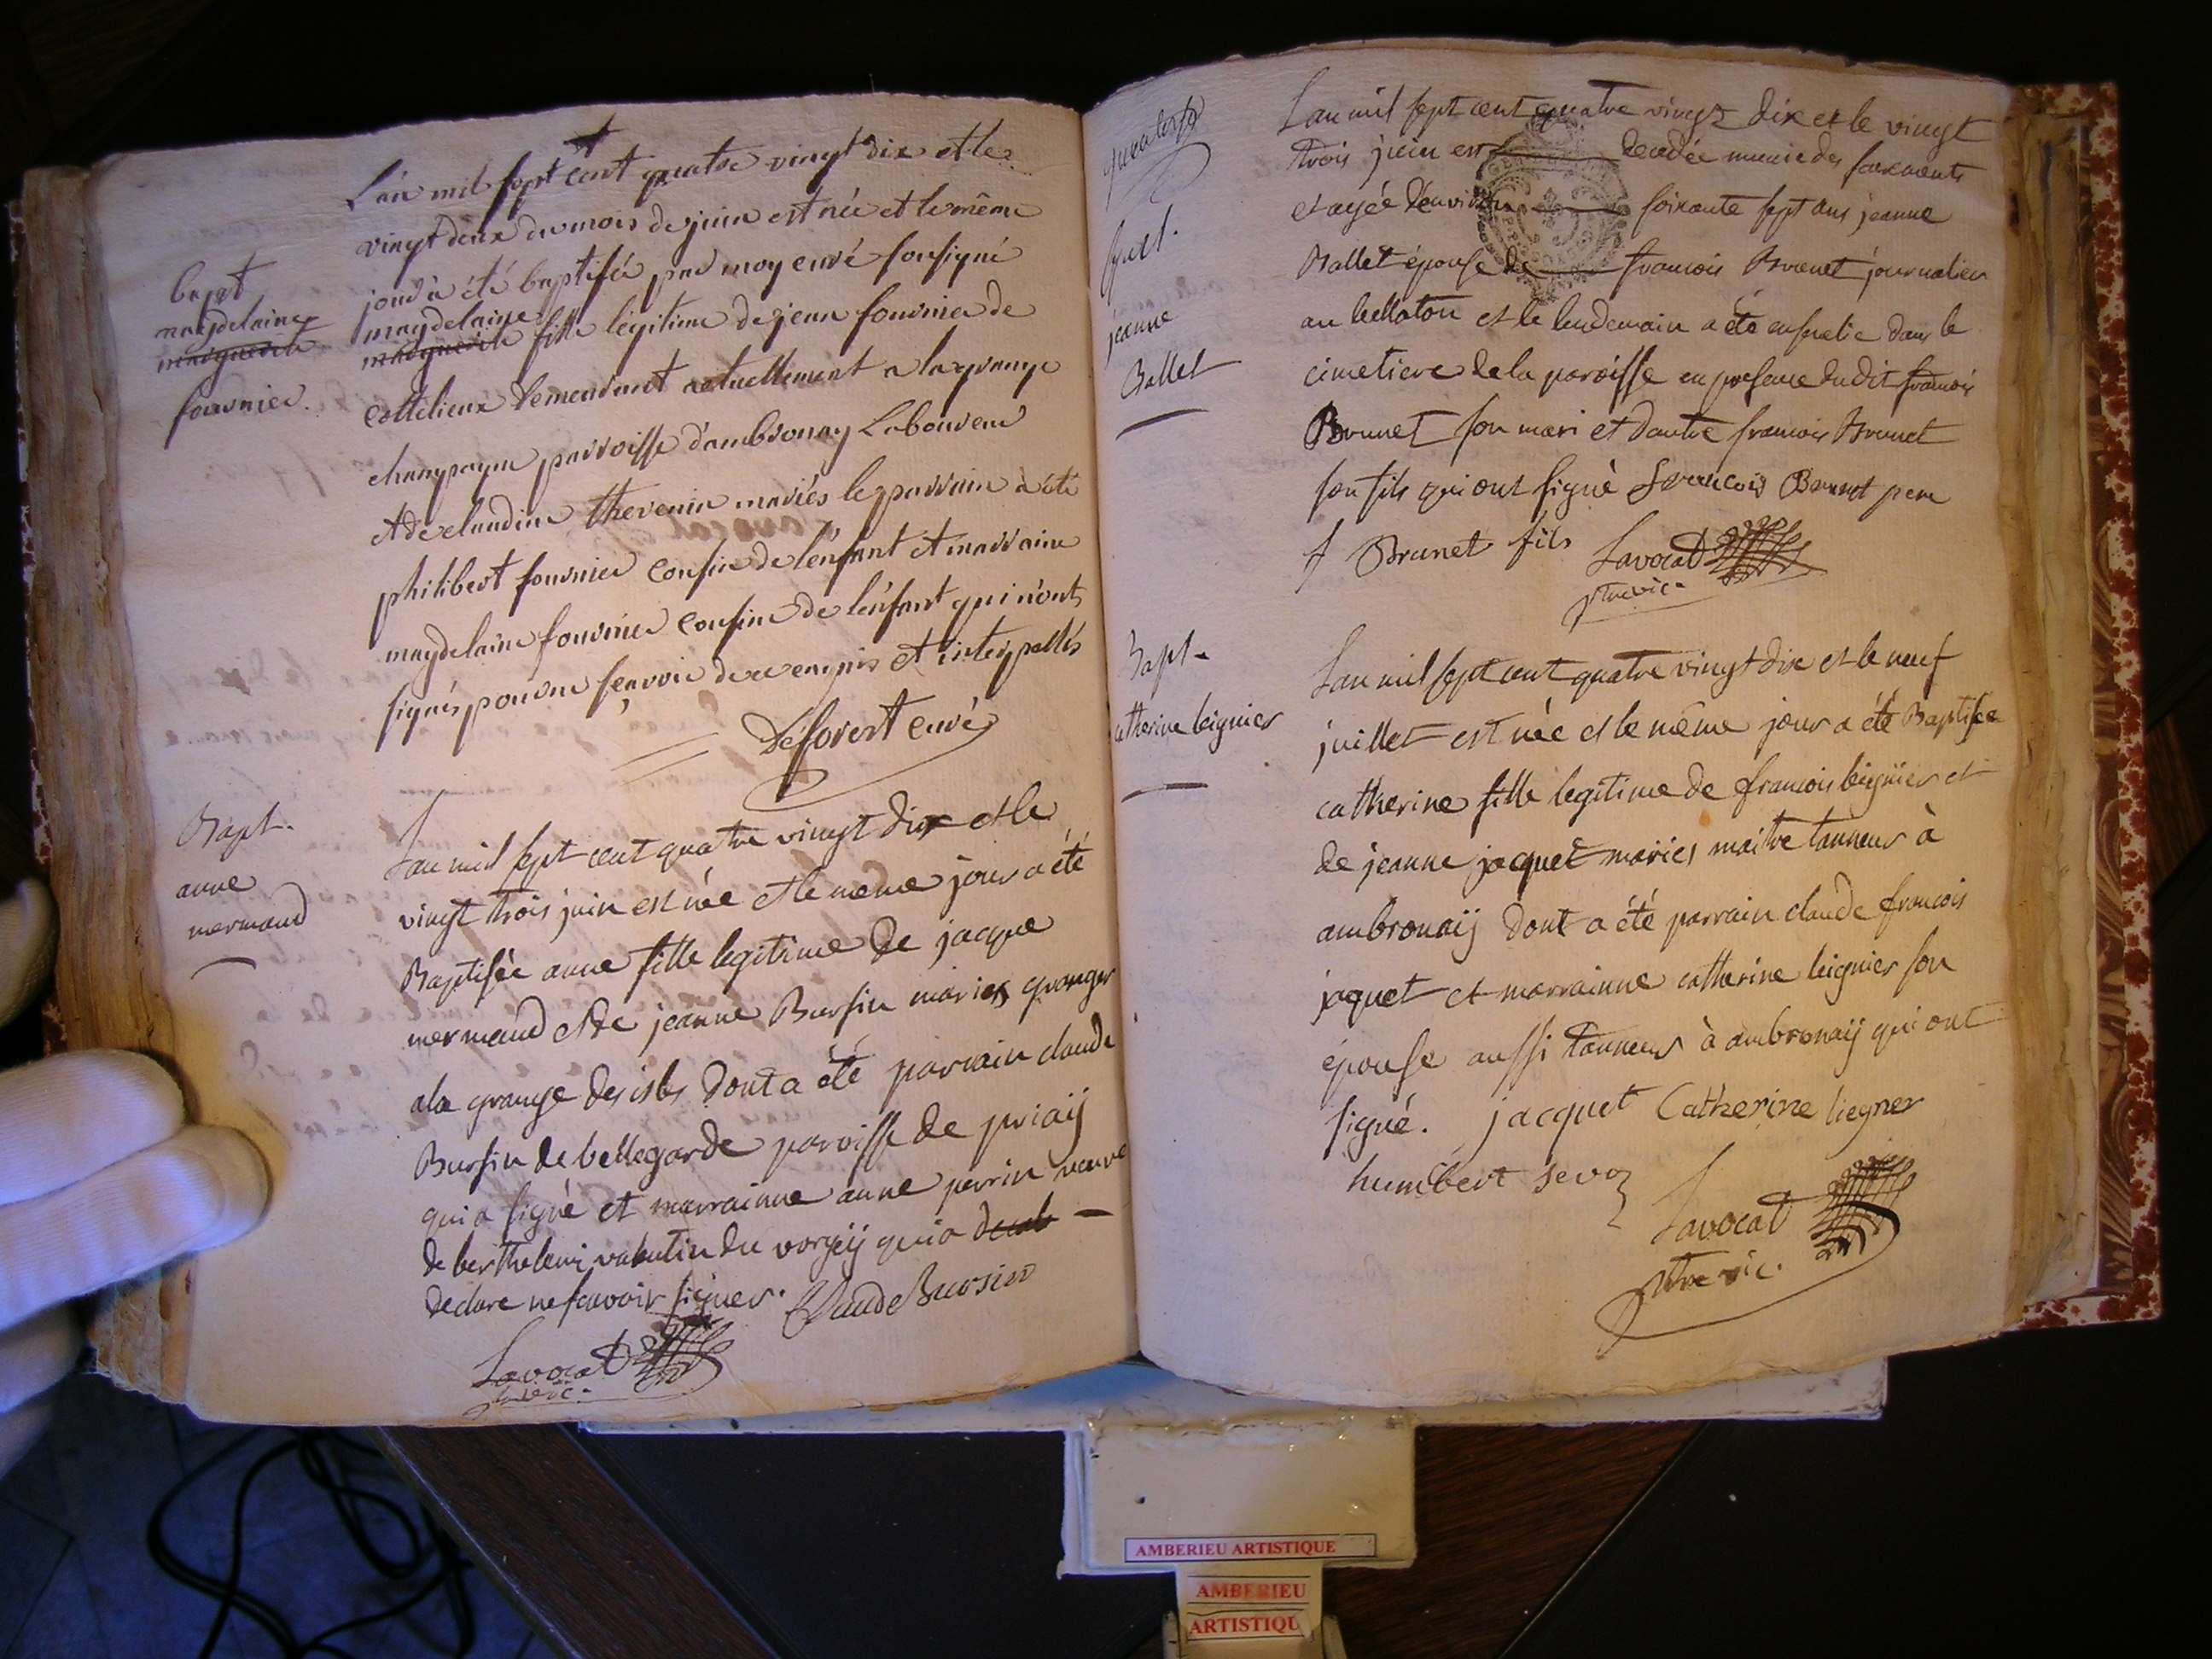 bapt
magdelaine
marguerite
fournier.
L'an mil sept cent quatre vingt dix et le
vingt deux du mois de juin est née et le même
jour a été baptisée par moy curé sousigné
magdelaine
marguerite fille légitime de jean fournier de
demeurant actuellement a la grange
champagne parroisse d'ambronay Laboureur
et de claudine thevenin mariés le parrain a été
philibert fournier cousin de l'enfant et marraine
magdelaine fournier cousine de l'enfant qui n'ont
signés pour ne sçavoir de ce enquis et interpellés
Deforest curé
Bapt.
anne
mermand
L'an mil sept cent quatre vingt dix et le
vingt trois juin est née et le meme jour a été
Baptisée anne fille legitime de jacque
mermand et de jeanne Bursin mariés granger
a la grange des isles dont a été parrain claude
Bursin de bellegarde paroisse de priaij
qui a signé et marrainne anne perrin veuve
de berthelemi valentin du vorgeij qui a
declare ne scavoir signer. Claude Bursin
Lavocat
ptre vic.
quatorze
sepul.
jeanne
Ballet
L'an mil sept cent quatre vingt dix et le vingt
trois juin est decedée munie des sacrements
et agée d'environ soixante sept ans jeanne
Ballet épouse de francois Brunet journalier
au bellaton et le lendemain a été ensevelie dans le
cimetiere de la paroisse en presence dudit francois
Brunet son mari et d'autre francois Brunet
son fils qui ont signé francois Brunet pere
f Brunet fils Lavocat
ptre vic.
Bapt.
catherine leignier
L'an mil sept cent quatre vingt dix et le neuf
juillet est née et le même jour a été Baptisée
catherine fille legitime de francois leignier et
de jeanne jacquet mariés maitre tanneur à
ambronaij dont a été parrain claude francois
jaquet et marrainne catherine leignier son
épouse aussi tanneur à ambronaij qui ont
signé. jacquet Catherine liegner
humbert sevoz Lavocat
ptre vic.
AMBERIEU ARTISTIQUE
AMBERIEU
ARTISTIQU